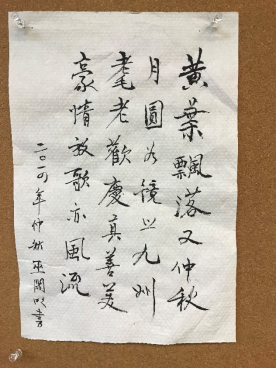 黃葉飄落又仲秋
月圓如鏡照九州
耄老歡慶真善美
豪情放歌亦風流
二〇二〇年仲秋